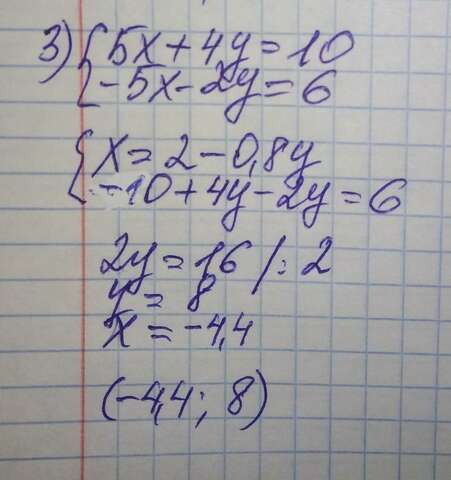 3) { 5x + 4y = 10
-5x - 2y = 6
{ x = 2 - 0,8y
-10 + 4y - 2y = 6
2y = 16 / : 2
y = 8
x = -4,4
(-4,4; 8)